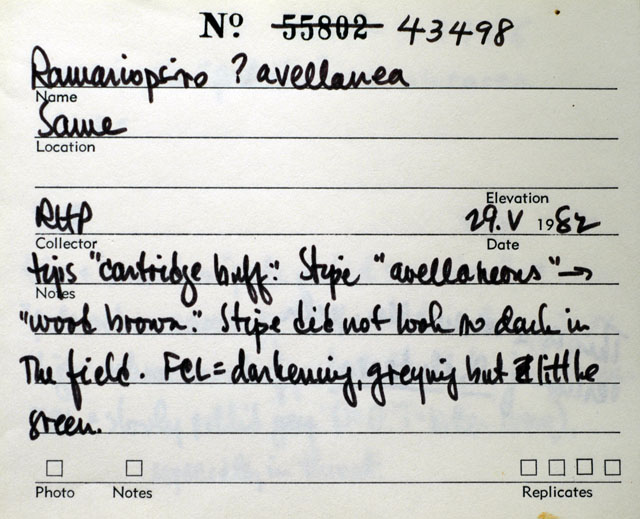 Nº 55802 43498
Ramariopsis ? avellanea
Name
Same
Location
Elevation
RHP 29.V 1982
Collector Date
tips "cartridge buff". Stipe "avellaneous" →
Notes
"wood brown". Stipe did not look so dark in
The field. FCL = darkening, greying but little
green.
Photo Notes Replicates